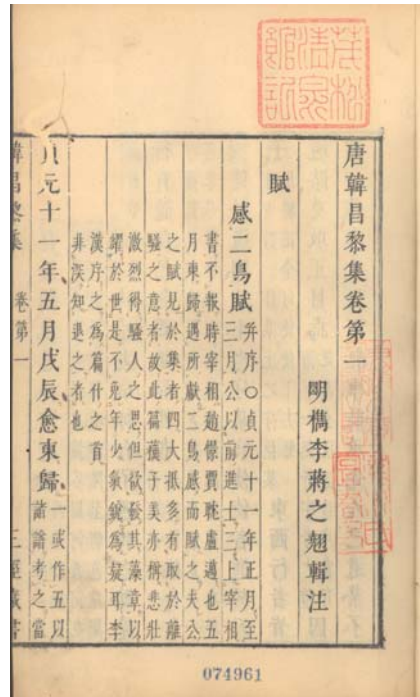 唐韓昌黎集卷第一
明檇李蔣之翹輯注
賦
感二鳥賦
并序〇貞元十一年正月至
三月公以前進士三上宰相
書不報時宰相趙憬賈耽盧邁也五
月東歸遇所獻二鳥感而賦之夫公
之賦見於集者四大抵多有取於離
騷之意者故此篇蘇子美亦稱悲壯
激烈得騷人之思但欲奮其藻章以
耀於世是不免年少氣銳為疑耳李
漢序之為篇什之首
非深知退之者也
貞元十一年五月戊辰愈東歸
一或作五以
諸譜考之當
韓昌黎集
卷第一
三徑藏書
074961